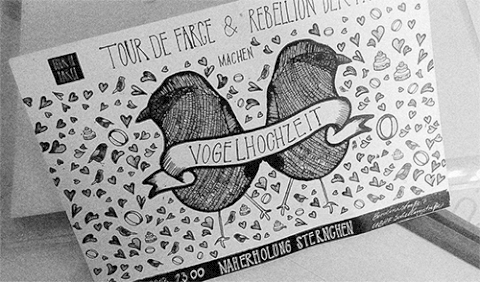 TOUR DE FARCE
TOUR DE FARCE & REBELLION DER
MACHEN
VOGELHOCHZEIT
23:00 NAHERHOLUNG STERNCHEN